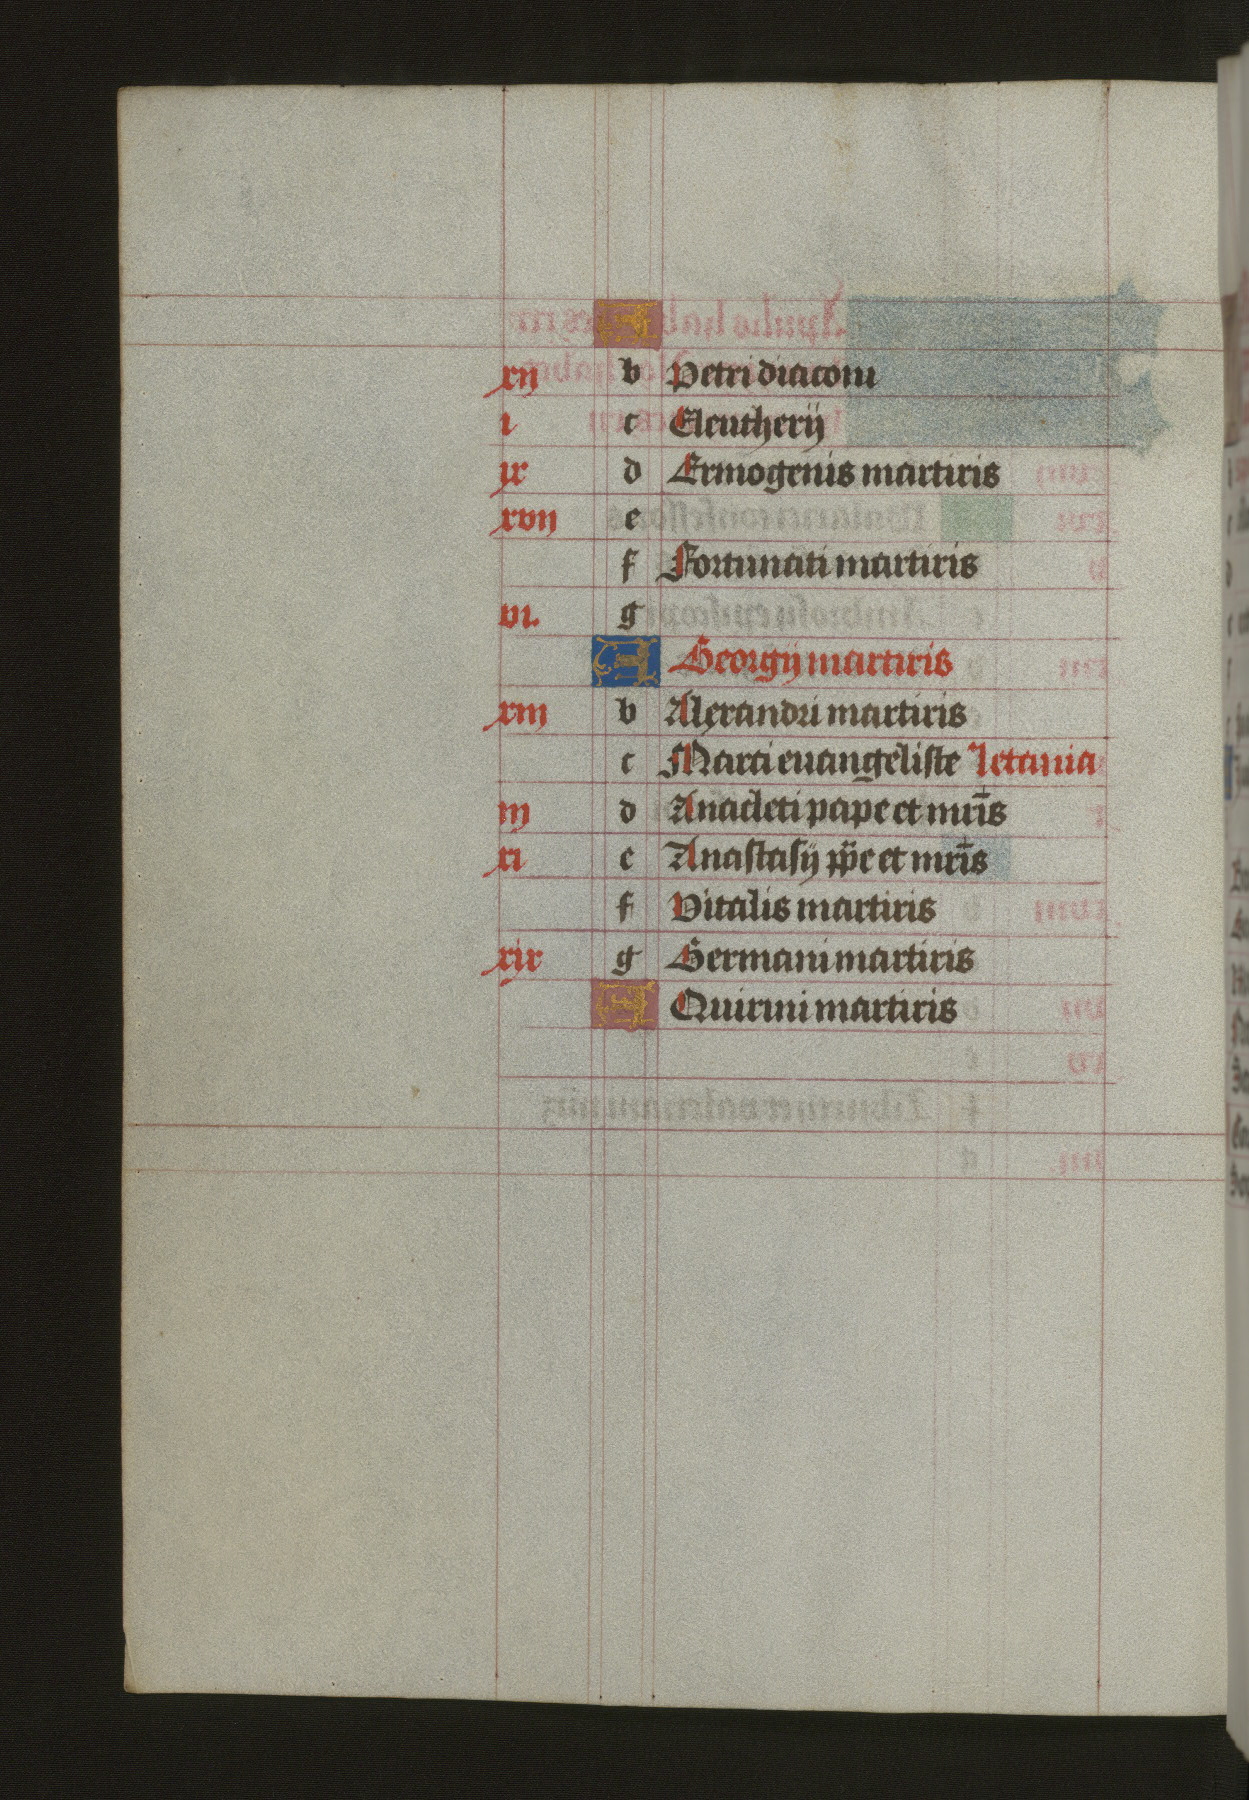 A
xij b Petri diaconi
i c Eleutherij
ix d Ermogenis martiris
xvij e
f Fortunati martiris
vi. g
A Georgij martiris
xiiij b Alexandri martiris
c Marci euangeliste letania
iij d Anacleti pape et mr̄is
xi e Anastasij pp̄e et mr̄is
f Vitalis martiris
xix g Germani martiris
A Quirini martiris